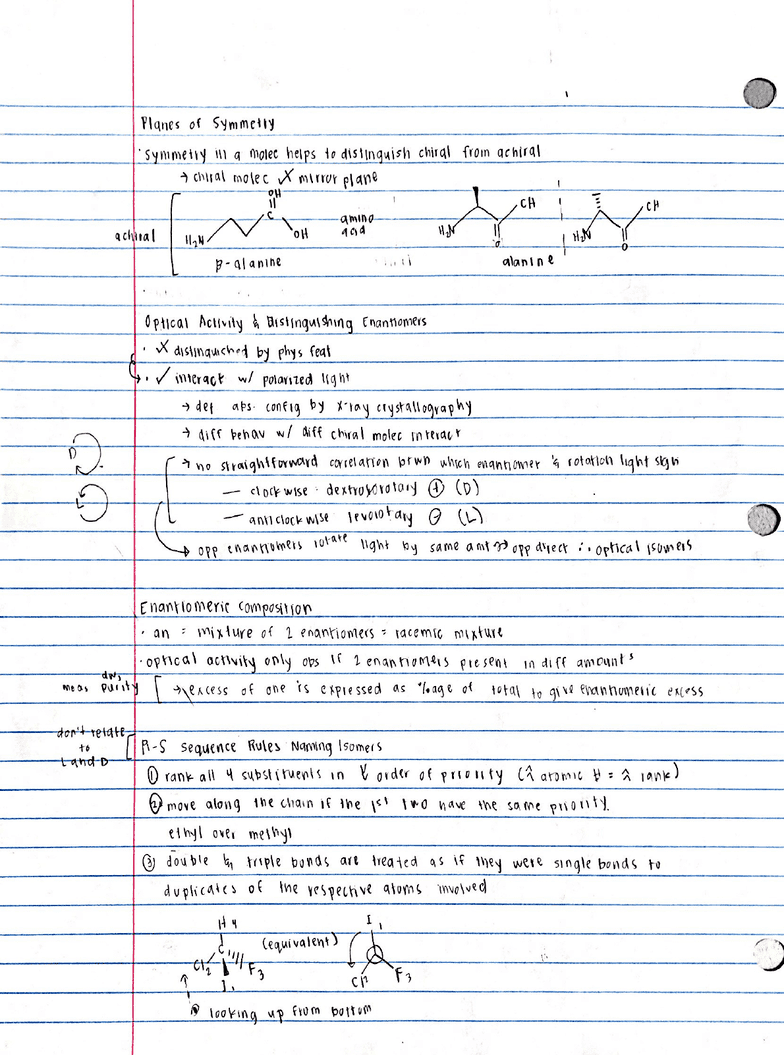 Planes of Symmetry
· symmetry in a molec helps to distinguish chiral from achiral
→ chiral molec ✗ mirror plane
achiral
H₂N
OH
C
OH
β-alanine
amino acid
H₂N
CH
O
H₂N
CH
O
alanine
Optical Activity & Distinguishing Enantiomers
· ✗ distinguished by phys feat
· ✓ interact w/ polarized light
→ det abs. config by x-ray crystallography
→ diff behav w/ diff chiral molec interact
D
→ no straightforward correlation btwn which enantiomer & rotation light sign
— clockwise : dextrorotary ⊕ (D)
L
— anticlockwise levorotary ⊖ (L)
→ opp enantiomers rotate light by same amt → opp direct ∴ optical isomers
Enantiomeric composition
· an = mixture of 2 enantiomers = racemic mixture
· optical activity only obs if 2 enantiomers present in diff amounts
meas purity
→ excess of one is expressed as %age of total to give enantiomeric excess
don't relate to L and D
R-S sequence Rules Naming Isomers
① rank all 4 substituents in order of priority (↑ atomic # = ↑ rank)
② move along the chain if the 1st two have the same priority.
ethyl over methyl
③ double & triple bonds are treated as if they were single bonds to
duplicates of the respective atoms involved
H 4
C
Cl 2
F 3
I 1
(equivalent)
I 1
Cl 2
F 3
looking up from bottom